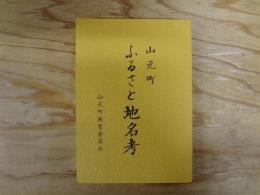 山元町
ふるさと地名考
山元町教育委員会